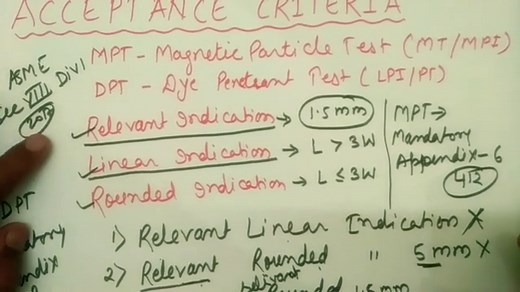 ACCEPTANCE CRITERIA
ASME
Sec VIII DIV1
MPT - Magnetic Particle Test (MT/MPI)
DPT - Dye Penetrant Test (LPI/PT)
Relevant Indication → 1.5mm
Linear Indication → L > 3W
Rounded Indication → L ≤ 3W
MPT →
Mandatory
Appendix-6
DPT
1) Relevant Linear Indication X
2) Relevant Rounded " 5mm X